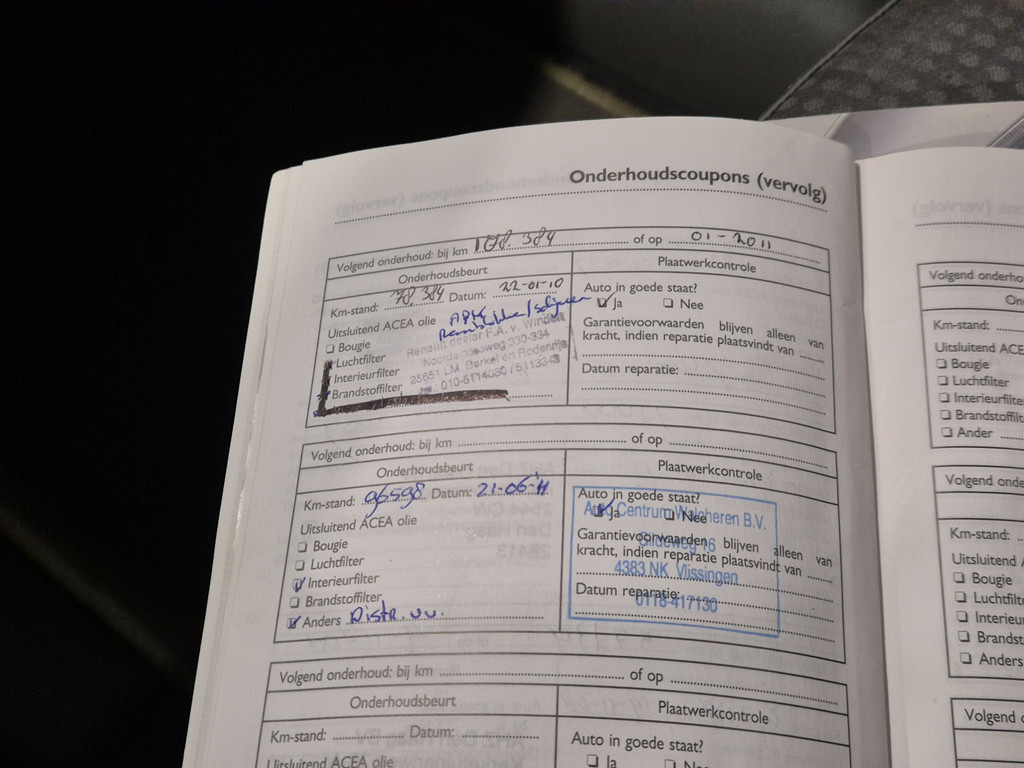 Onderhoudscoupons (vervolg)
Volgend onderhoud: bij km 108.384 of op 01-2011
Onderhoudsbeurt
Plaatwerkcontrole
Km-stand: 78.384 Datum: 22-01-10
Uitsluitend ACEA olie APK
Bougie
Luchtfilter
Interieurfilter
Brandstoffilter
Renault dealer F.A. v. Winden
Noordeindseweg 330-334
2651 LM Berkel en Rodenrijs
Auto in goede staat?
Ja Nee
Garantievoorwaarden blijven alleen van
kracht, indien reparatie plaatsvindt van
Datum reparatie:
Volgend onderhoud: bij km of op
Onderhoudsbeurt
Plaatwerkcontrole
Km-stand: 96598 Datum: 21-06-11
Uitsluitend ACEA olie
Bougie
Luchtfilter
Interieurfilter
Brandstoffilter
Anders Distr. vv.
Auto in goede staat?
Ja Nee
Garantievoorwaarden blijven alleen van
kracht, indien reparatie plaatsvindt van
Datum reparatie:
Auto Centrum Walcheren B.V.
Gildeweg 16
4383 NK Vlissingen
0118-417130
Volgend onderhoud: bij km of op
Onderhoudsbeurt
Plaatwerkcontrole
Km-stand: Datum:
Uitsluitend ACEA olie
Auto in goede staat?
Ja Nee
Volgend
Km-stand:
Uitsluitend
Bougie
Luchtfilter
Interieurfilter
Brandstoffilter
Ander
Volgend
Km-stand:
Uitsluitend
Bougie
Anders
Volgend